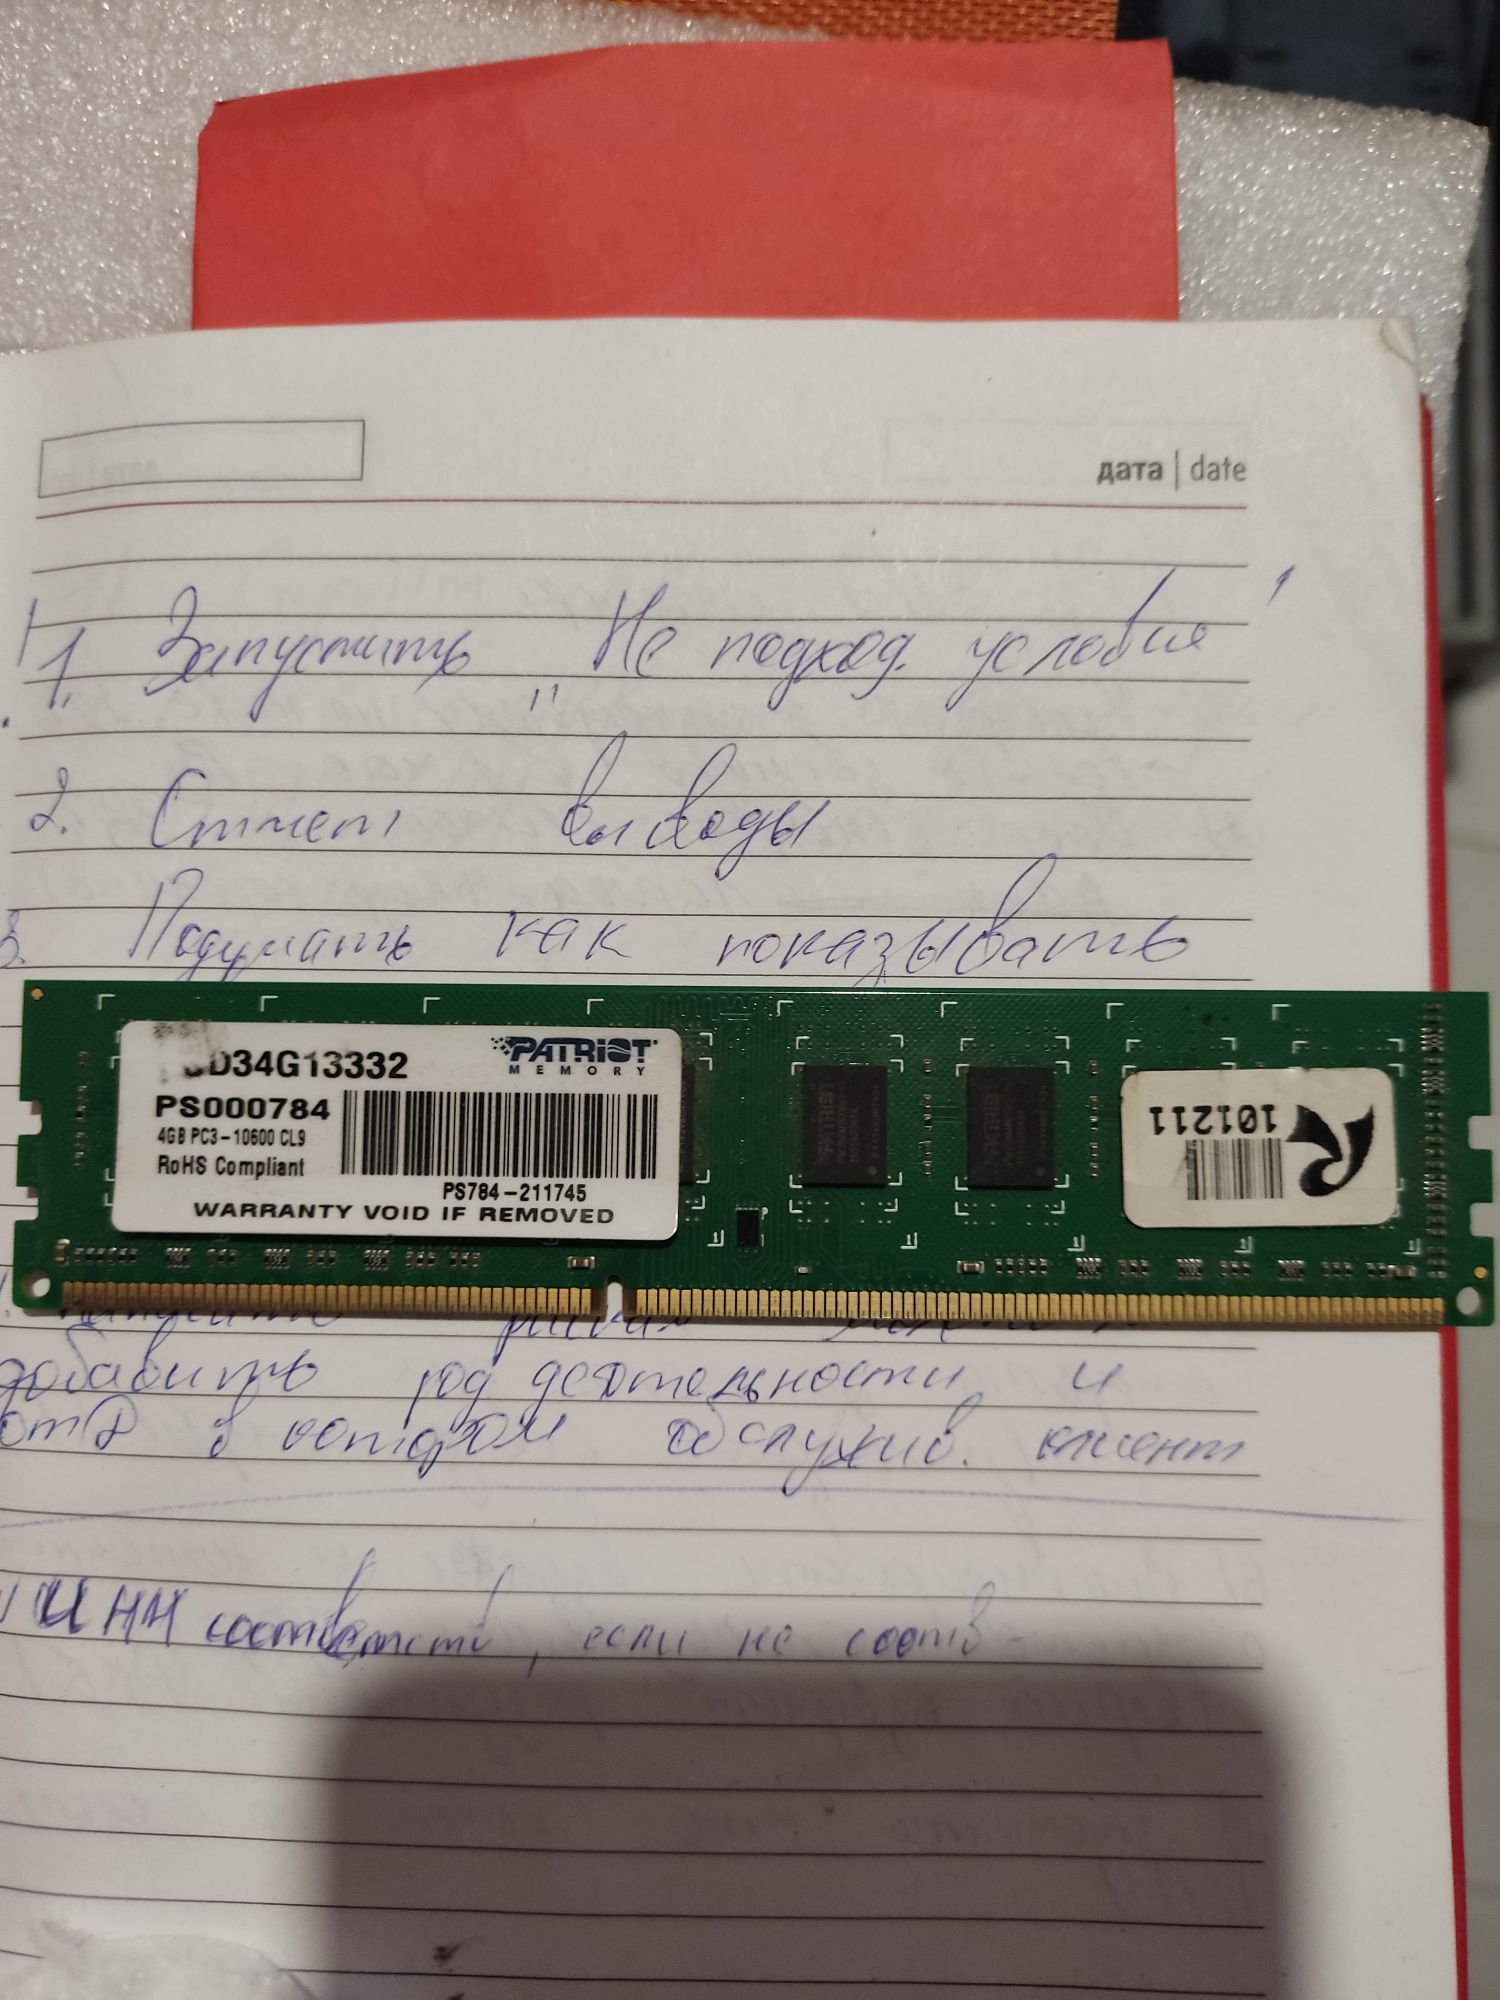 дата | date
1. Запустить „Не подход. условия"
2. Стмет выводы
3. Подумать как показывать
PSD34G13332
PATRIOT
MEMORY
PS000784
4GB PC3-10600 CL9
RoHS Compliant
PS784-211745
WARRANTY VOID IF REMOVED
101211
добавить год деятельности и
в котором обслужив. клиент
ИНН соответств, если не соотв-